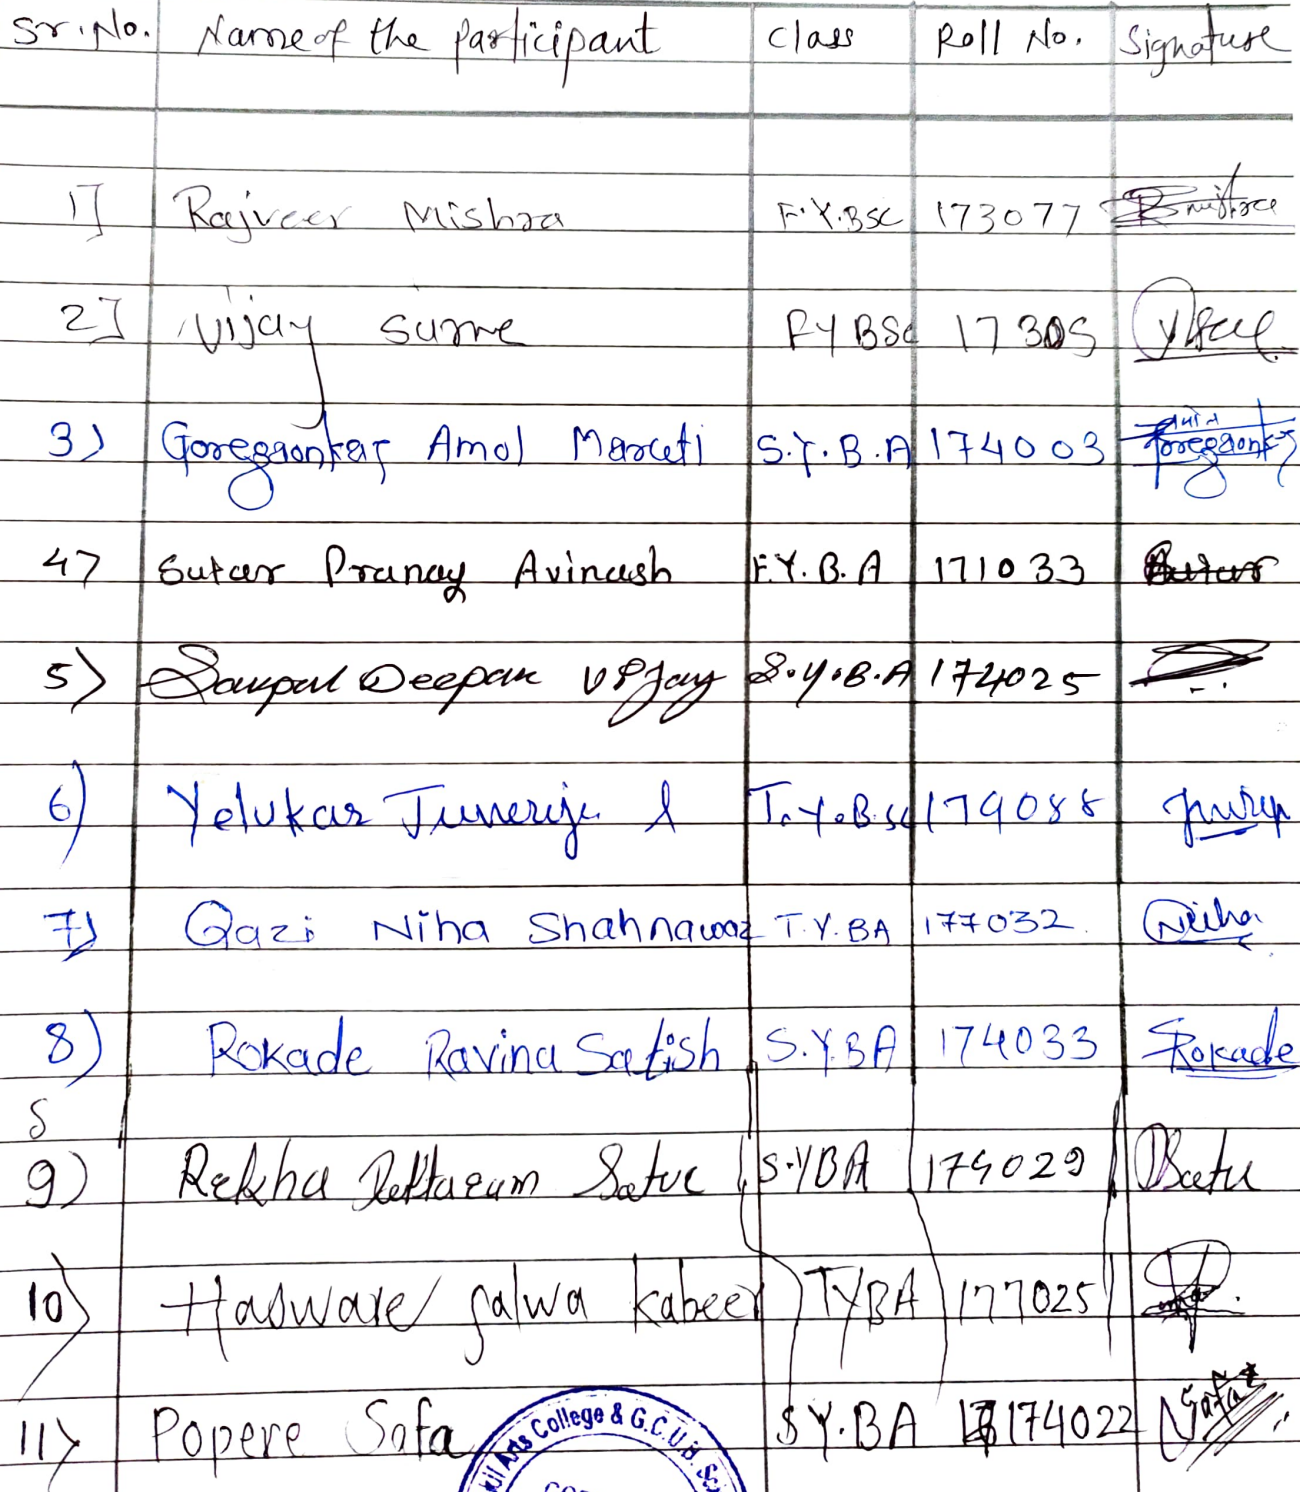 Sr.No. Name of the participant Class Roll No. Signature
1] Rajveer Mishra F.Y.BSC 173077
2] Vijay Surve FYBSc 17305
3) Goregaonkar Amol Maruti S.Y.B.A 174003 Goregaonkar
4) Sutar Pranay Avinash F.Y.B.A 171033 Sutar
5) Deepak Vijay S.Y.B.A 174025
6) Yelukar T.Y.Bsc 179088
7) Qazi Niha Shahnawaz T.Y.BA 177032 Niha
8) Rokade Ravina Satish S.Y.BA 174033 Rokade
9) Rekha Satve S.YBA 174029
10) Hasware Salwa Kabeer TYBA 177025
11) Popere Safa SY.BA 174022 Safa
Arts College & G.C.U.B.